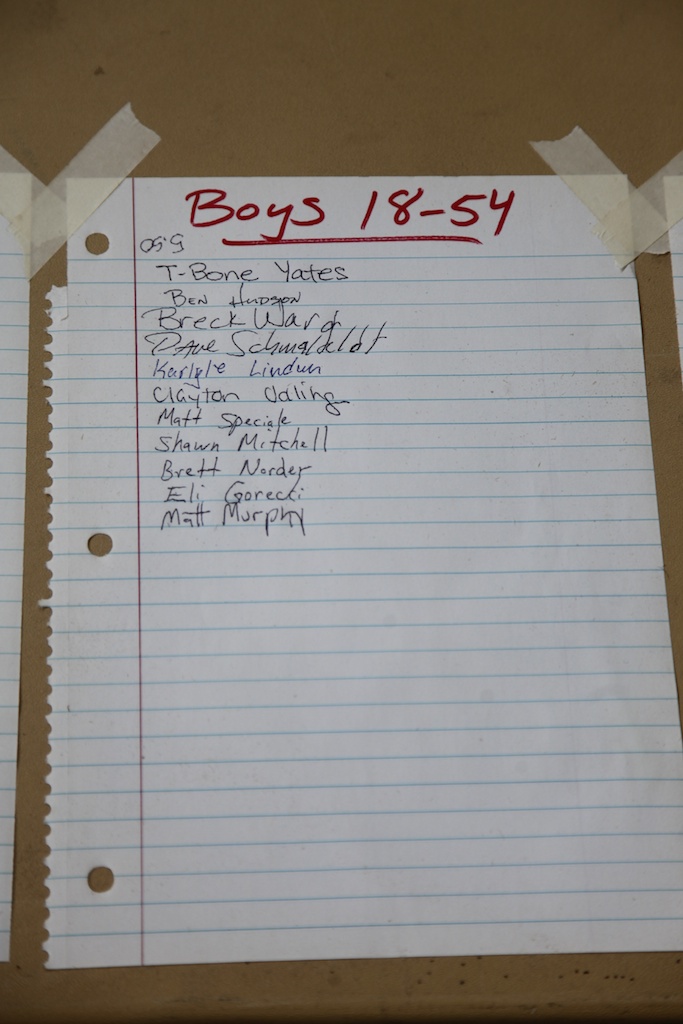 Boys 18-54
5:50
T-Bone Yates
Ben Hudson
Breck Ward
Dave Schmaldeldt
Karlyle Lindun
Clayton
Matt Speciale
Shawn Mitchell
Brett Norder
Eli Gorecki
Matt Murphy